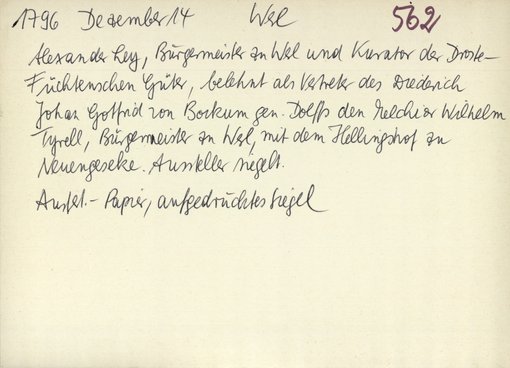 1796 Dezember 14 Werl 562
Alexander Ley, Bürgermeister zu Werl und Kurator der Droste-
Füchtenschen Güter, belehnt als Vertreter des Diederich
Johan Gotfrid von Bockum gen. Dolffs den Melchior Wilhelm
Tyrell, Bürgermeister zu Werl, mit dem Hellingshof zu
Neuengeseke. Aussteller siegelt.
Ausfert. - Papier, aufgedrücktes Siegel